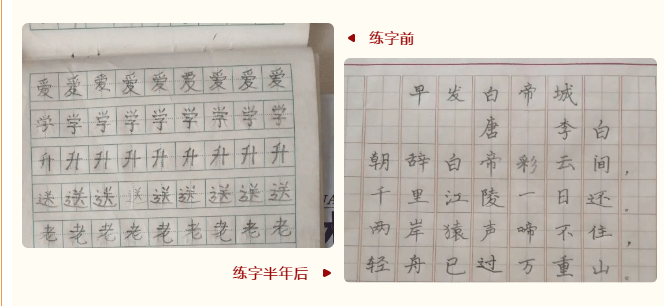 爱爱爱爱爱爱爱爱爱
学学学学学学学学学
升升升升升升升升升
送送送送送送送送送
老老老老老老老老老
练字前
早发白帝城
唐 李白
朝辞白帝彩云间，
千里江陵一日还。
两岸猿声啼不住，
轻舟已过万重山。
练字半年后